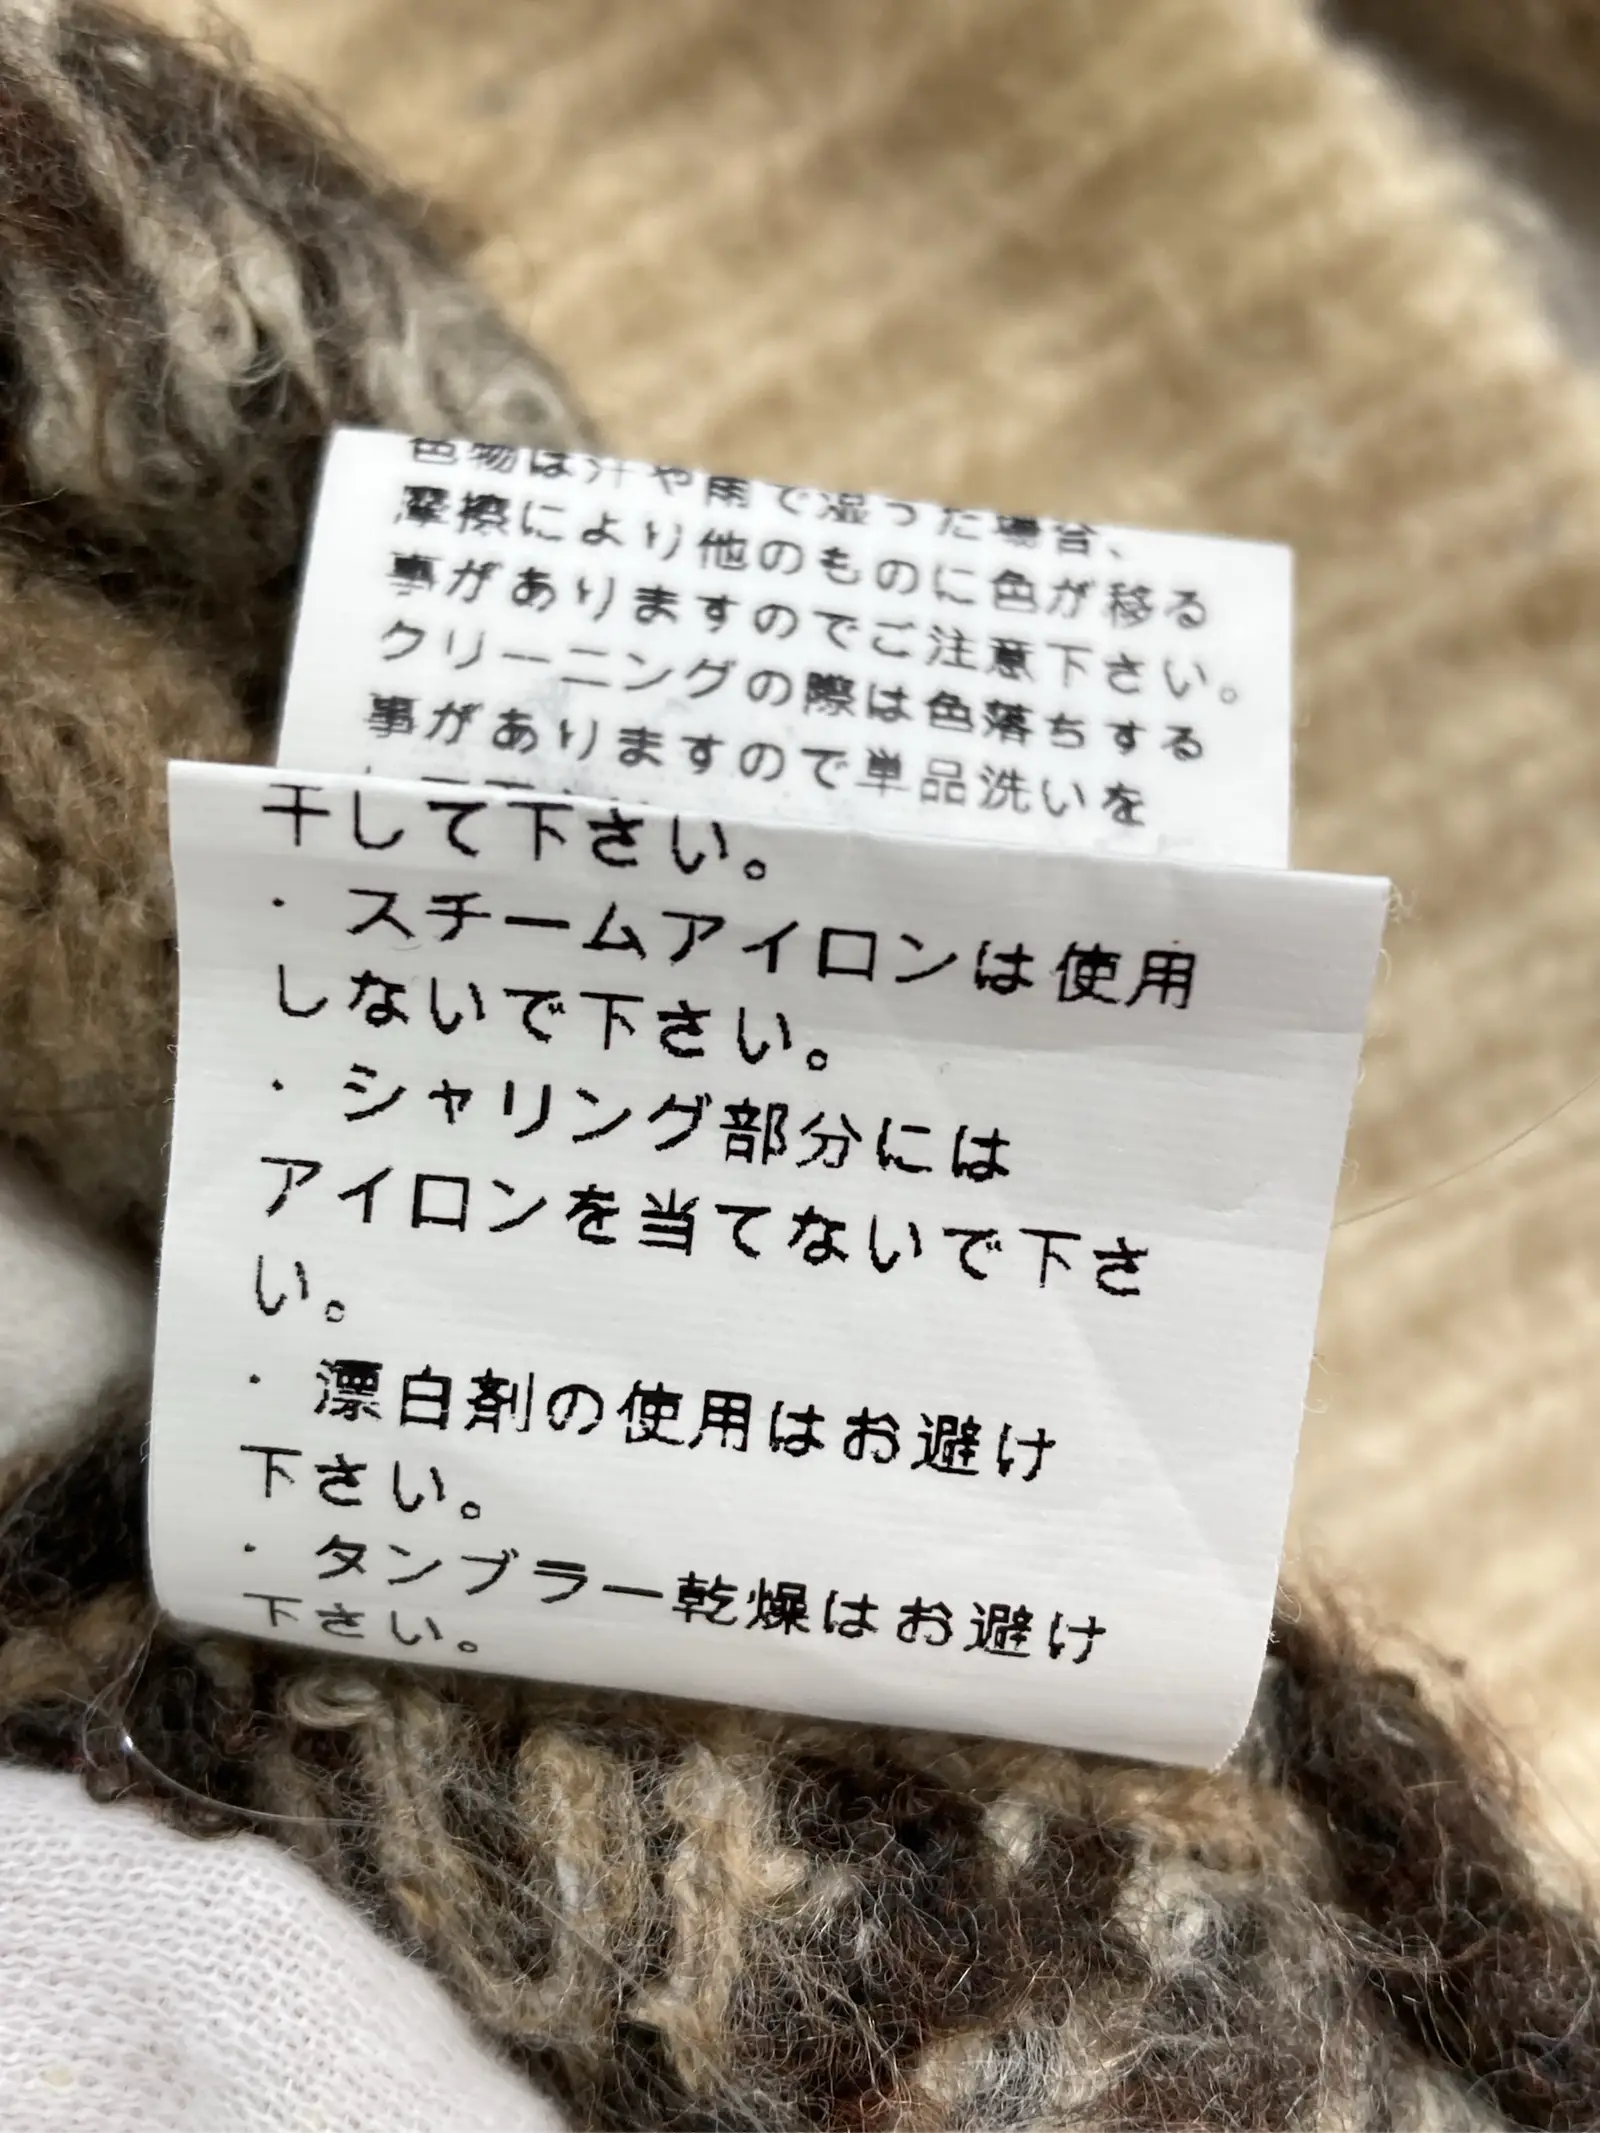 色物は汗や雨で湿った場合、
摩擦により他のものに色が移る
事がありますのでご注意下さい。
クリーニングの際は色落ちする
事がありますので単品洗いを
干して下さい。
・スチームアイロンは使用
しないで下さい。
・シャリング部分には
アイロンを当てないで下さ
い。
・漂白剤の使用はお避け
下さい。
・タンブラー乾燥はお避け
下さい。